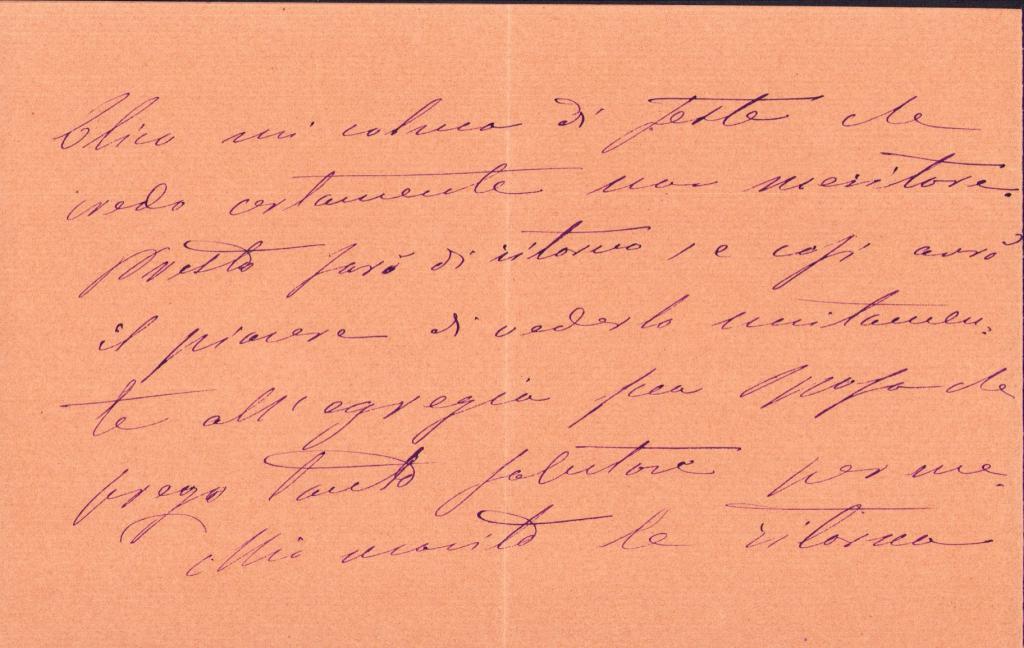 mi colma di feste che
credo certamente non meritare.
Presto sarò di ritorno, e così avrò
il piacere di vederlo unitamen=
te all'egregia sua Sposa che
prego tanto salutare per me.
Mio marito le ritorna